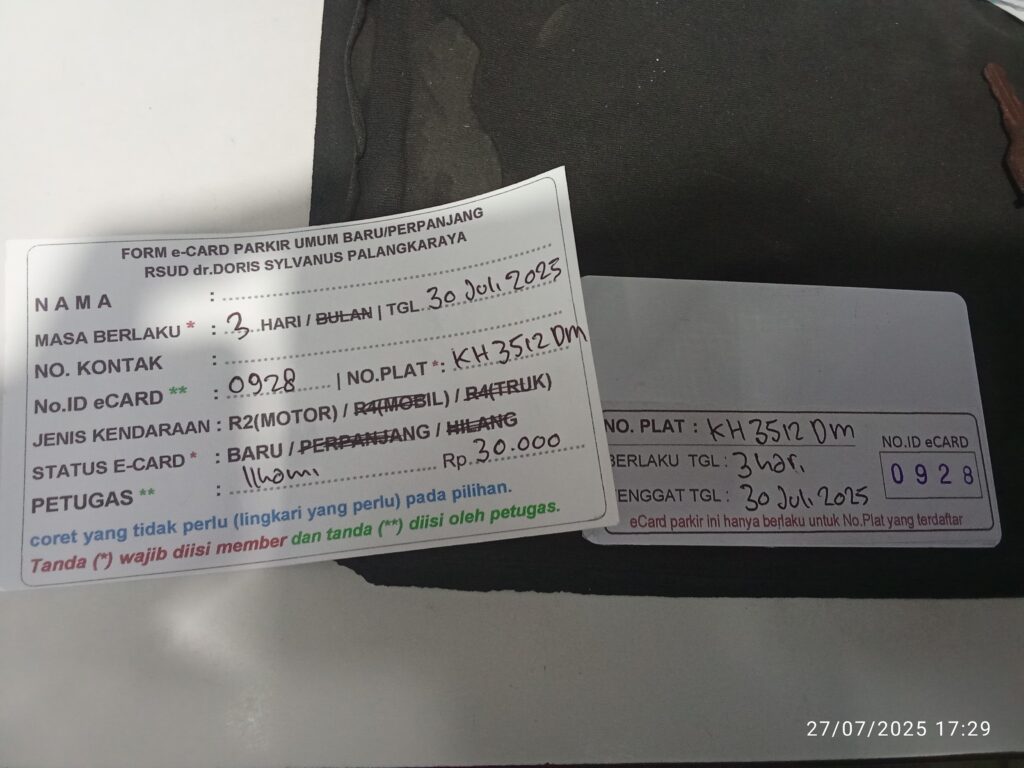 FORM e-CARD PARKIR UMUM BARU/PERPANJANG
RSUD dr.DORIS SYLVANUS PALANGKARAYA
NAMA :
MASA BERLAKU * : 3 HARI / BULAN | TGL. 30 Juli 2025
NO. KONTAK :
No.ID eCARD ** : 0928 | NO.PLAT *: KH 3512 DM
JENIS KENDARAAN : R2(MOTOR) / R4(MOBIL) / R4(TRUK)
STATUS E-CARD * : BARU / PERPANJANG / HILANG
PETUGAS ** : Ilhami Rp. 30.000
coret yang tidak perlu (lingkari yang perlu) pada pilihan.
Tanda (*) wajib diisi member dan tanda (**) diisi oleh petugas.
NO. PLAT : KH 3512 DM
NO.ID eCARD
0928
BERLAKU TGL : 3 hari
TENGGAT TGL : 30 Juli 2025
eCard parkir ini hanya berlaku untuk No.Plat yang terdaftar
27/07/2025 17:29